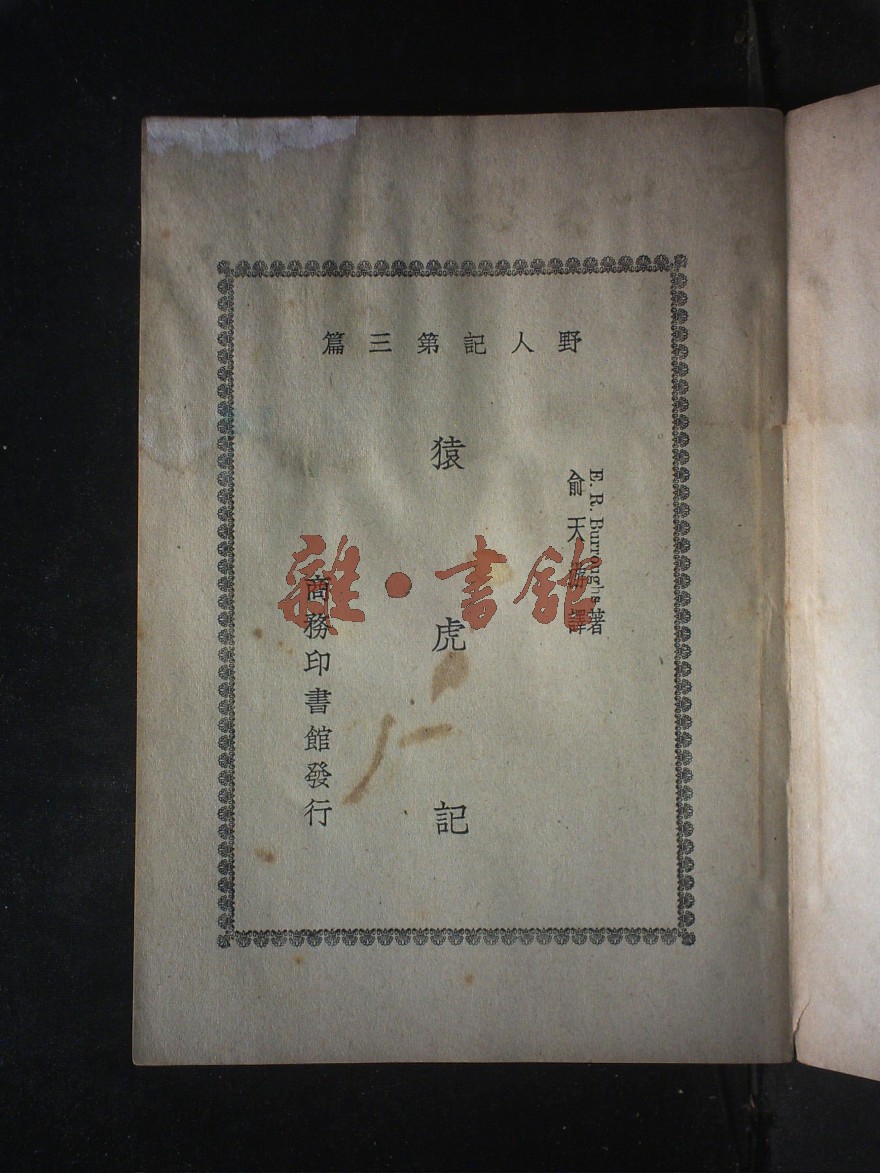 野人記第三篇
E. R. Burroughs著
俞天游譯
猿虎記
商務印書館發行
雜·書館